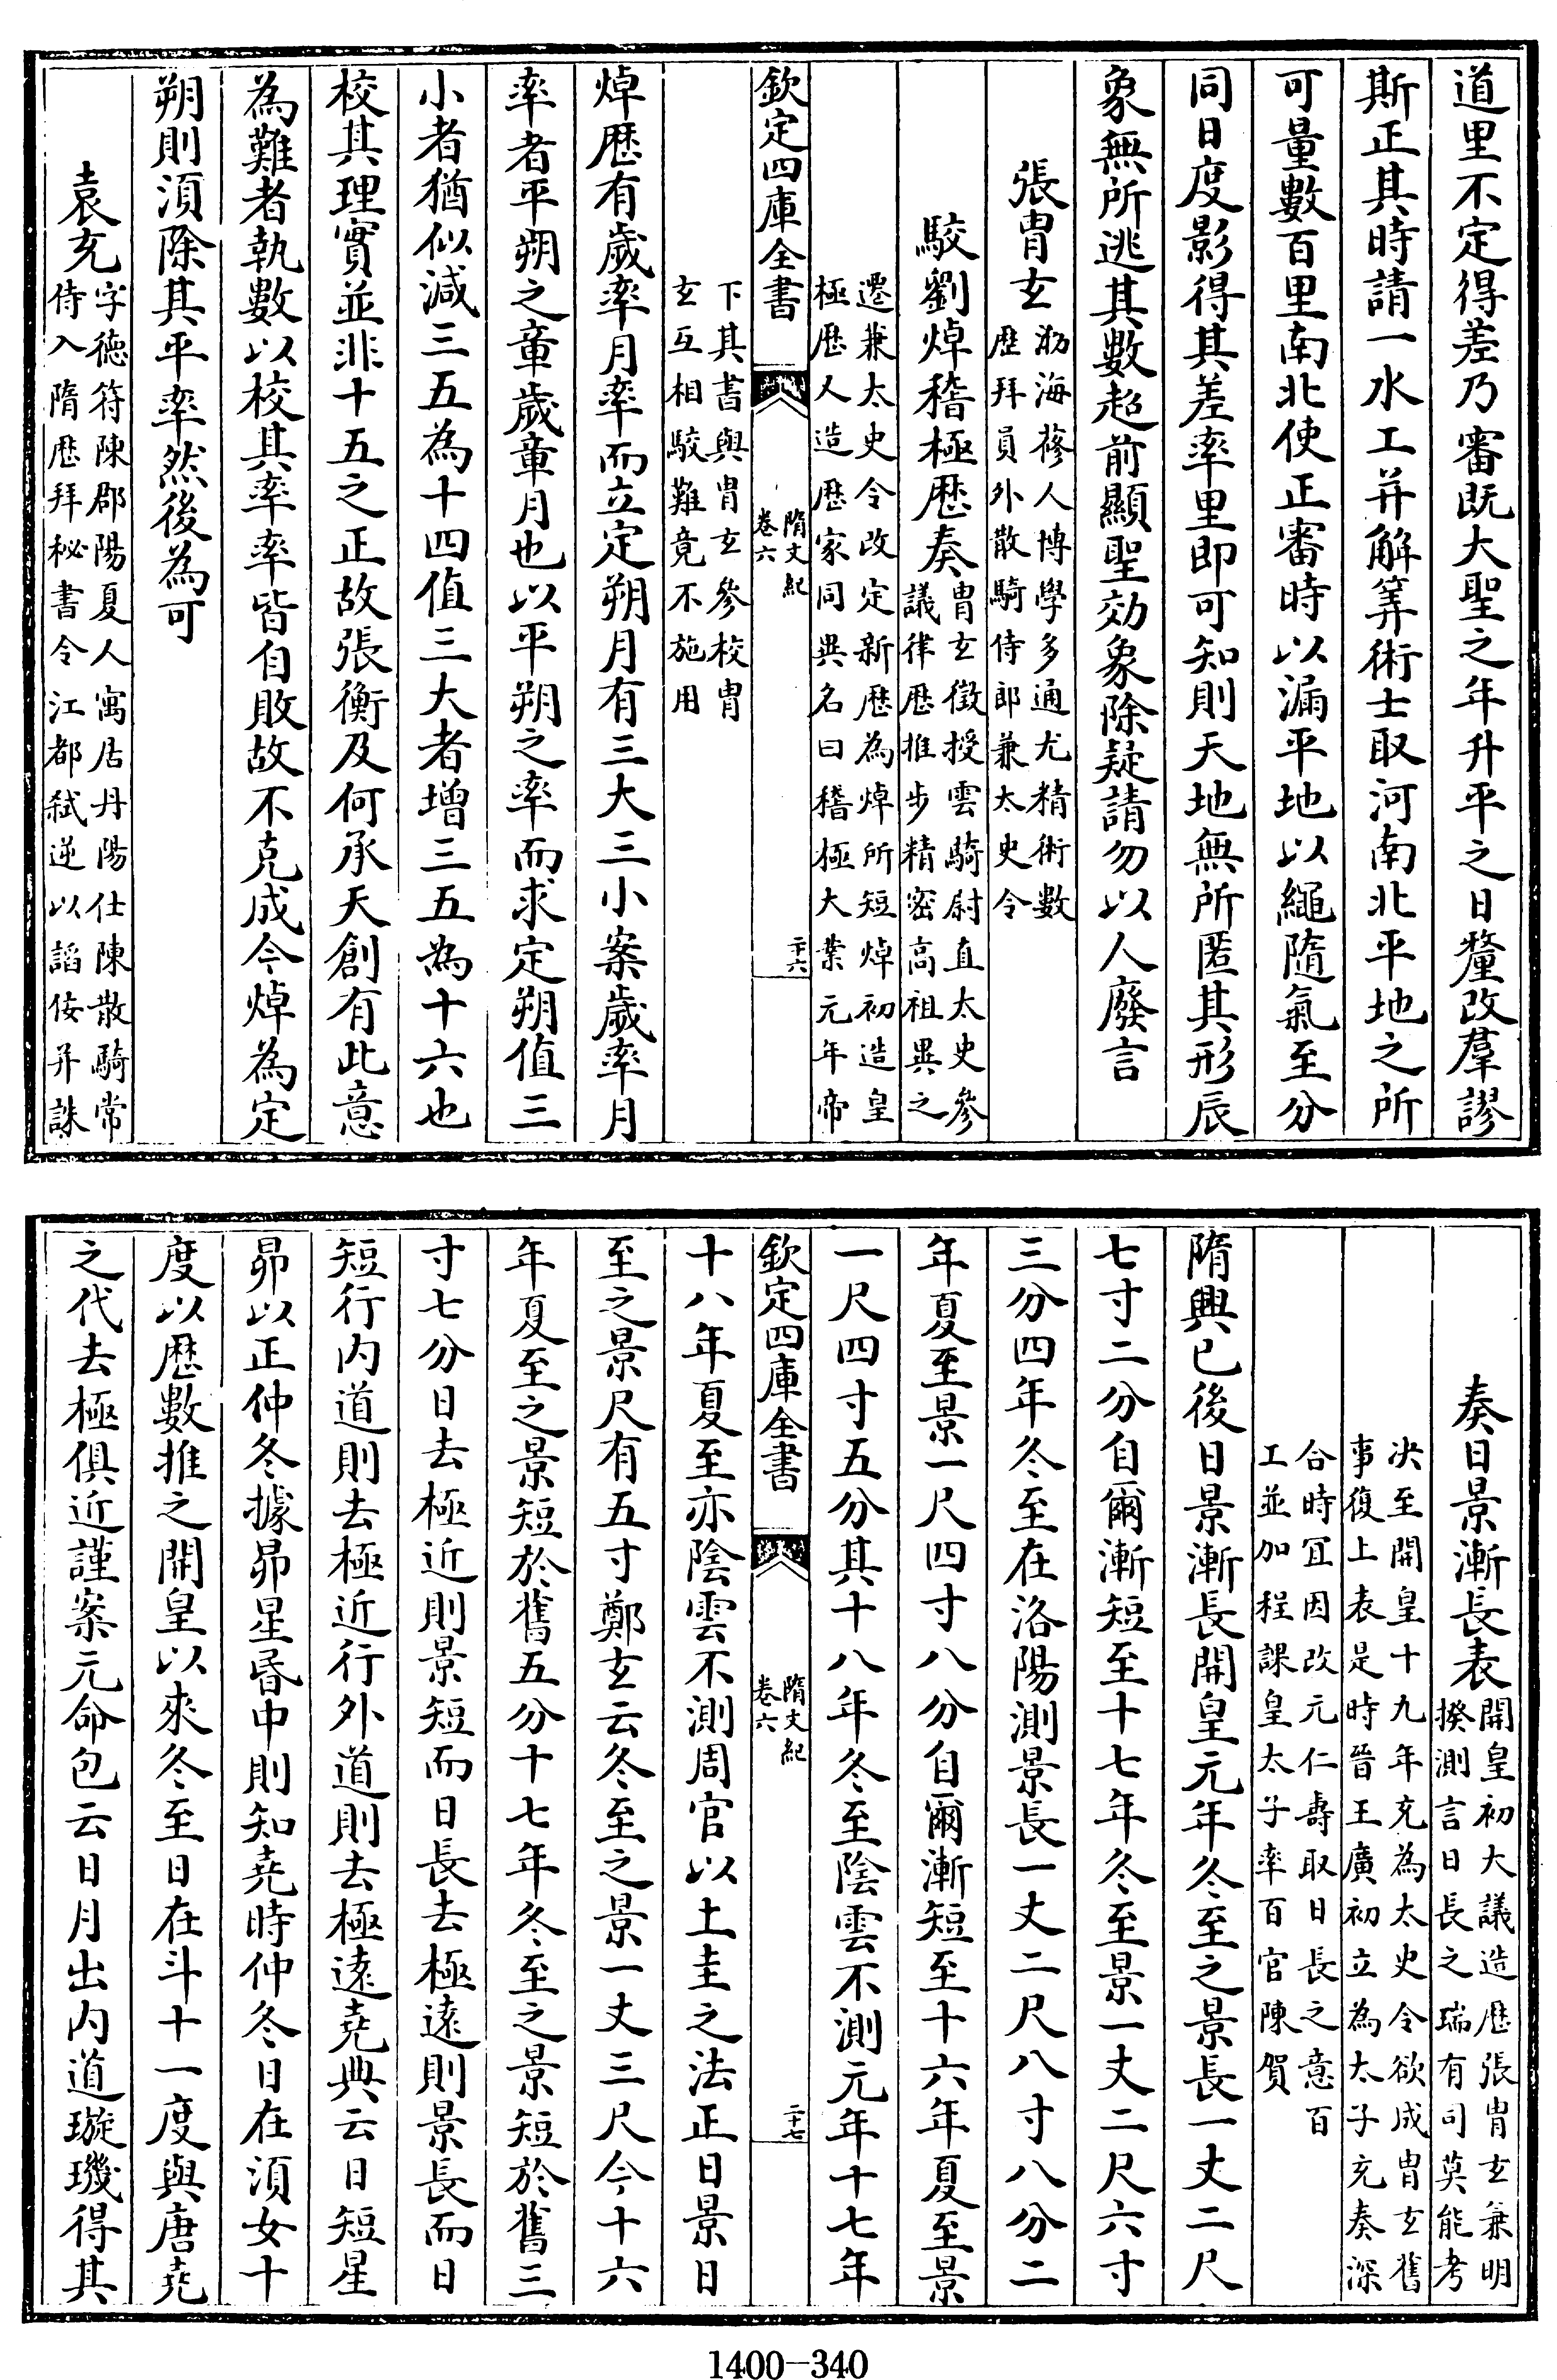 道里不定得差乃審既大聖之年升平之日釐改羣謬
斯正其時請一水工并解筭術士取河南北平地之所
可量數百里南北使正審時以漏平地以繩隨氣至分
同日度影得其差率里即可知則天地無所匿其形辰
象無所逃其數超前顯聖効象除疑請勿以人廢言
張胄玄
渤海蓨人博學多通尤精術數
歴拜員外散騎侍郎兼太史令
駮劉焯稽極歴奏
胄玄徵授雲騎尉直太史參
議律歴推步精密高祖異之
遷兼太史令改定新歴為焯所短焯初造皇
極歴人造歴家同異名曰稽極大業元年帝
欽定四庫全書
隋文紀
卷六
二十六
下其書與胄玄參校胄
玄互相駮難竟不施用
焯歴有歲率月率而立定朔月有三大三小案歲率月
率者平朔之章歲章月也以平朔之率而求定朔值三
小者猶似減三五為十四值三大者增三五為十六也
校其理實並非十五之正故張衡及何承天創有此意
為難者執數以校其率率皆自敗故不克成今焯為定
朔則須除其平率然後為可
袁充
字德符陳郡陽夏人寓居丹陽仕陳散騎常
侍入隋歴拜秘書令江都弑逆以諂佞并誅
奏日景漸長表
開皇初大議造歴張胄玄兼明
揆測言日長之瑞有司莫能考
决至開皇十九年充為太史令欲成胄玄舊
事復上表是時晉王廣初立為太子充奏深
合時冝因改元仁壽取日長之意百
工並加程課皇太子率百官陳賀
隋興已後日景漸長開皇元年冬至之景長一丈二尺
七寸二分自爾漸短至十七年冬至景一丈二尺六寸
三分四年冬至在洛陽測景長一丈二尺八寸八分二
年夏至景一尺四寸八分自爾漸短至十六年夏至景
一尺四寸五分其十八年冬至陰雲不測元年十七年
欽定四庫全書
隋文紀
卷六
二十七
十八年夏至亦陰雲不測周官以土圭之法正日景日
至之景尺有五寸鄭玄云冬至之景一丈三尺今十六
年夏至之景短於舊五分十七年冬至之景短於舊三
寸七分日去極近則景短而日長去極遠則景長而日
短行内道則去極近行外道則去極遠堯典云日短星
昴以正仲冬據昴星昏中則知堯時仲冬日在須女十
度以歴數推之開皇以來冬至日在斗十一度與唐堯
之代去極俱近謹案元命包云日月出内道璇璣得其
1400-340